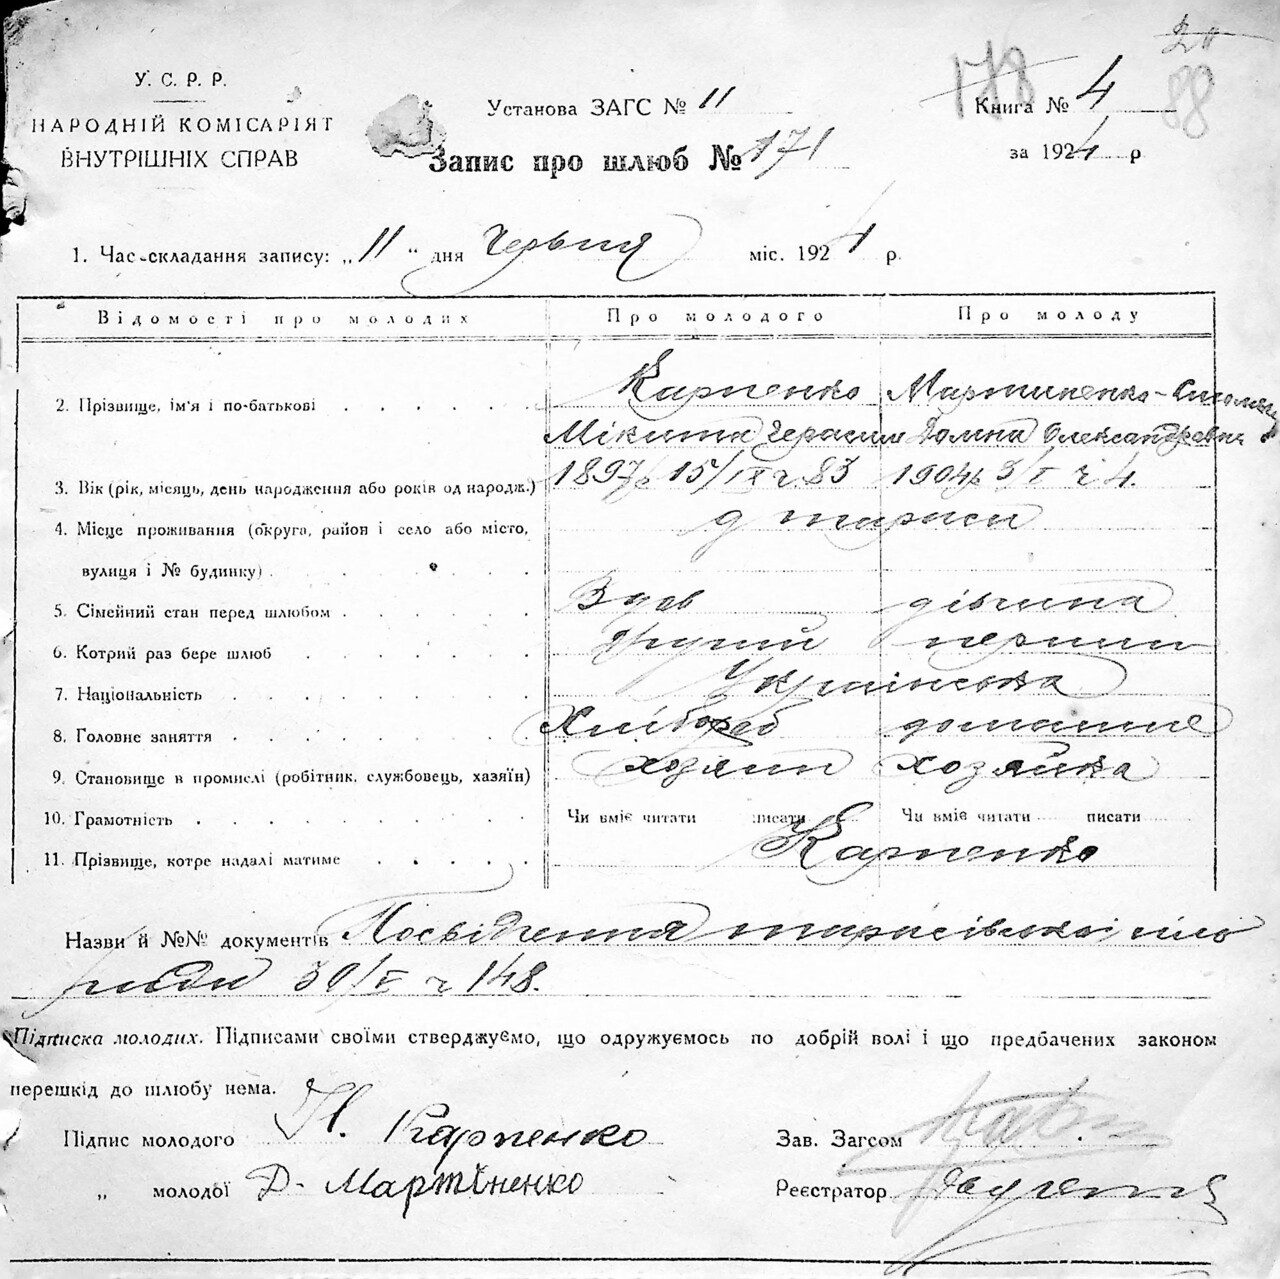 20
178
88
У. С. Р. Р.
НАРОДНІЙ КОМІСАРІЯТ
ВНУТРІШНІХ СПРАВ
Установа ЗАГС № 11
Книга № 4
Запис про шлюб № 171
за 1924 р
1. Час складання запису: „11" дня Червня міс. 1924 р.
Відомості про молодих Про молодого Про молоду
2. Прізвище, ім'я і по-батькові Карпенко Мартиненко-
Мікита Герасим Домна Олександревн
3. Вік (рік, місяць, день народження або років од народж.) 1897р 15/IX ч. 83 1904р 3/I ч 4.
4. Місце проживання (округа, район і село або місто, д тараси
вулиця і № будинку)
5. Сімейний стан перед шлюбом Вдов дівчина
6. Котрий раз бере шлюб другий перший
7. Національність Українська
8. Головне заняття Хлібороб домашнє
9. Становище в промислі (робітник, службовець, хазяїн) хозяин хозяйка
10. Грамотність Чи вміє читати писати Чи вміє читати писати
11. Прізвище, котре надалі матиме Карпенко
Назви й №№ документів Посвідчення тарасівської сіль
ради 30/V ч 148.
Підписка молодих. Підписами своїми стверджуємо, що одружуємось по добрій волі і що предбачених законом
перешкід до шлюбу нема.
Підпис молодого Н. Карпенко Зав. Загсом
„ молодої Д. Мартіненко Реєстратор